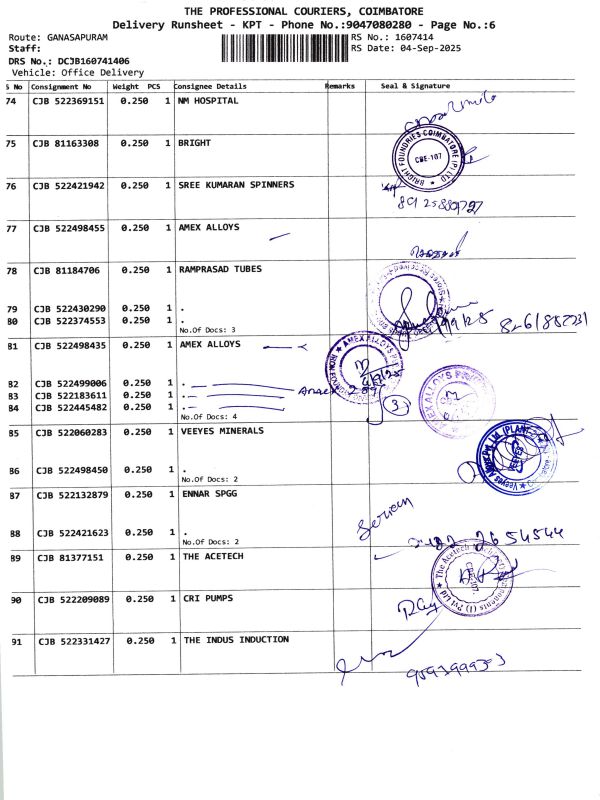 THE PROFESSIONAL COURIERS, COIMBATORE
Delivery Runsheet - KPT - Phone No.:9047080280 - Page No.:6
Route: GANASAPURAM
RS No.: 1607414
Staff:
RS Date: 04-Sep-2025
DRS No.: DCJB160741406
Vehicle: Office Delivery
S No Consignment No Weight PCS Consignee Details Remarks Seal & Signature
74 CJB 522369151 0.250 1 NM HOSPITAL
75 CJB 81163308 0.250 1 BRIGHT
BRIGHT FOUNDRIES COIMBATORE (P) LTD
CBE-107
76 CJB 522421942 0.250 1 SREE KUMARAN SPINNERS
77 CJB 522498455 0.250 1 AMEX ALLOYS
78 CJB 81184706 0.250 1 RAMPRASAD TUBES
79 CJB 522430290 0.250 1 .
80 CJB 522374553 0.250 1 .
No.Of Docs: 3
81 CJB 522498435 0.250 1 AMEX ALLOYS
AMEX ALLOYS P
82 CJB 522499006 0.250 1 .
83 CJB 522183611 0.250 1 .
84 CJB 522445482 0.250 1 .
No.Of Docs: 4
3
AMEX ALLOYS
85 CJB 522060283 0.250 1 VEEYES MINERALS
86 CJB 522498450 0.250 1 .
No.Of Docs: 2
87 CJB 522132879 0.250 1 ENNAR SPGG
88 CJB 522421623 0.250 1 .
No.Of Docs: 2
2654544
89 CJB 81377151 0.250 1 THE ACETECH
The Acetech
90 CJB 522209089 0.250 1 CRI PUMPS
91 CJB 522331427 0.250 1 THE INDUS INDUCTION